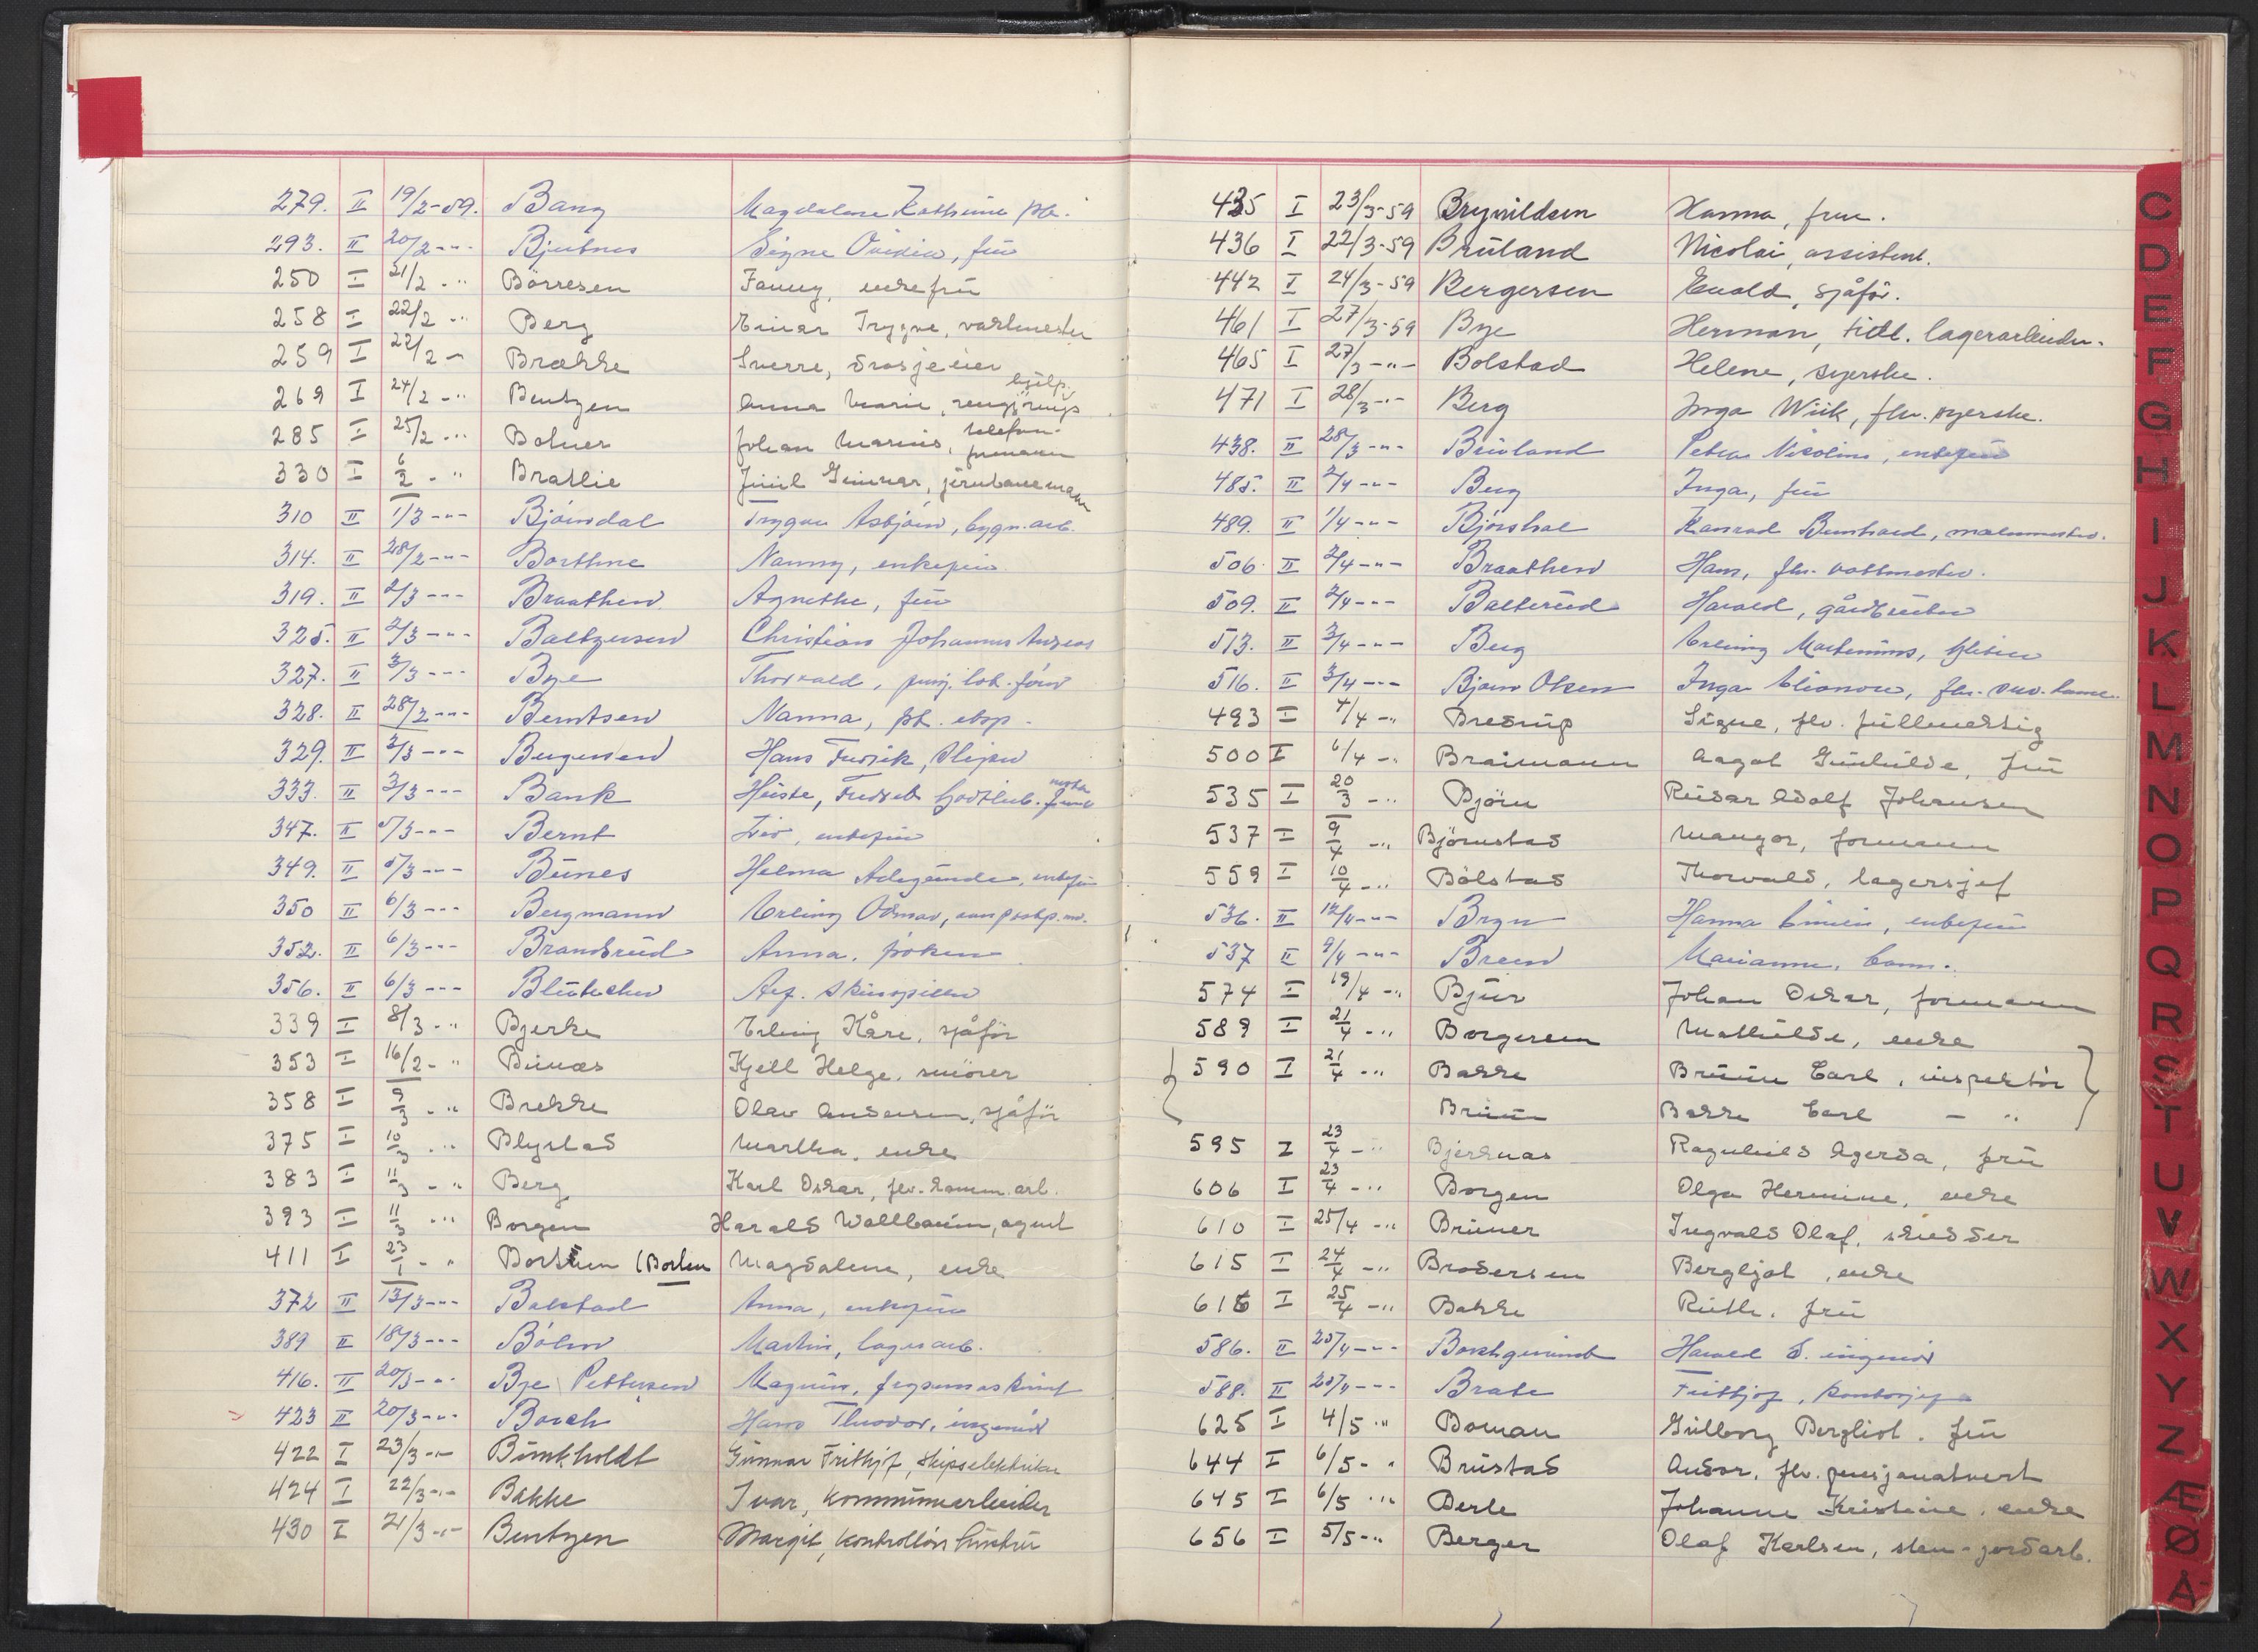 279. II 19/2-59. Bang Magdalene Kathrine
293. II 20/2 -"- Bjertnes Signe, frü
250 I 21/2 -" Börresen Fanny, enkefrü
258 I 22/2 -" Berg Einar Trygve, vaktmester
259 I 22/2 -" Brække Sverre, drosjeeier
269 I 24/2 -" Bentzen Anna Marie, rengjörings hjelp.
285 I 25/2 -" Bolner Johan Marius, telefon- formann
330 I 6/2 -" Bratlie Emil Gunnar, jernbanemann
310 II 1/3 -"- Björndal Trygve Asbjörn, bygn.arb.
314. II 28/2 -"- Borthne Nanny, enkefrü
319. II 2/3 -"- Braathen Agnethe, frü
325. II 2/3 -"- Baltzersen Christian Johannes Andreas
327. II 3/3 -"- Bye Thorvald, pensj. lok. förer
328. II 28/2 -"- Berntsen Nanna,
329. II 2/3 -"- Bergersen Hans Fredrik,
333. II 3/3 -"- Bank Fredrik Gottlieb.
347. II 5/3 -"- Bernt enkefrü
349. II 5/3 -"- Bünes Helma enkefrü
350 II 6/3 -"- Bergmann Erling Odmar,
352. II 6/3 -"- Brandsrud Anna, fröken
356. II 6/3 -"- Blütecher Arf. Skuespiller
339 I 8/3 -" Bjerke Erling Kåre, sjåför
353 I 16/2 -" Bünæs Kjell Helge, smörer
358 I 9/3 -" Brekke Olav Andersen, sjåför
375 I 10/3 -" Blystad Martha, enke
383 I 11/3 -" Berg Karl Oskar, fhv. komm.arb.
393 I 11/3 -" Borgen Harald Wallbaum, agent
411 I 23/1 -" Borthen (Borten Magdalene, enke
372 II 13/3 -"- Bolstad Anna, enkefrü
389 II 18/3 -"- Böhn Martin, lagerarb.
416. II 20/3 -"- Bye Pettersen Magnus,
423 II 20/3 -"- Borch Hans Theodor, ingeniör
422 I 23/3 -"- Bünkholdt Günnar Frithjof, skipselektriker
424 I 22/3 -"- Bakke Ivar, kommünearbeider
430 I 21/3 -"- Bentzen Margit, kontrollör
435 I 23/3-59 Brynildsen Hanna, frue.
436 I 22/3-59 Brüland Nicolai, assistent.
442 I 24/3-59 Bergersen Evald, sjåför.
461 I 27/3-59 Bye Herman, tidl. lagerarbeider.
465 I 27/3 -"- Bolstad Helene, syerske.
471 I 28/3 -"- Berg Inga Wiik, fhv. syerske.
438. II 28/3 -"- Brüland Petra Nicoline, enkefrü
485. II 2/4 -"- Berg Inga, frü
489. II 1/4 -"- Björshol Konrad Bernhard, malermester.
506. II 2/4 -"- Braathen Hans, fhv. vaktmester.
509. II 2/4 -"- Balterud Harald, gårdbrüker
513. II 3/4 -"- Berg Erling Martinius,
516. II 3/4 -"- Bjørn Olsen Inga Elianore,
493 I 4/4 -" Bredrup Signe, fhv. füllmektig
500 I 6/4 -" Braimann Aagot Günhilde, frü
535 I 20/3 -" Björn Reidar Adolf Johansen
537 I 9/4 -" Björnstad Mangor, formann
559 I 10/4 -" Bölstad Thorvald, lagersjef
536. II 12/4 -"- Bryn Hanna, enkefrü
537 II 9/4 -"- Breen Marianne,
574 I 19/4 -" Bjür Johan Oskar, formann
589 I 21/4 -" Borgersen Mathilde, enke
590 I 21/4 -" Bakke Brüun Carl, inspektör
Brüun Bakke Carl - "
595 I 23/4 -" Bjerknas Ragnhild Agerda, frü
606 I 23/4 -" Borgen Olga Hermine, enke
610 I 25/4 -" Brüner Ingvald Olaf, skredder
615 I 24/4 -" Brodersen Bergljot, enke
616 I 25/4 -" Bakke Rüth, frü
586. II 25/4 -"- Borchgrevink Harald S. ingeniör
588. II 25/4 -"- Brate Frithjof, kontorsjef
625 I 4/5 -" Boman Gülborg Bergliot. frü
644 I 6/5 -" Brüstad Andor, fhv. pensjonatvert
645 I 6/5 -" Berle Johanne Kristine, enke
656 I 5/5 -" Berger Olaf Karlsen, sten-jordarb.
C
D
E
F
G
H
I
J
K
L
M
N
O
P
Q
R
S
T
U
V
W
X
Y
Z
Æ
Ø
Å